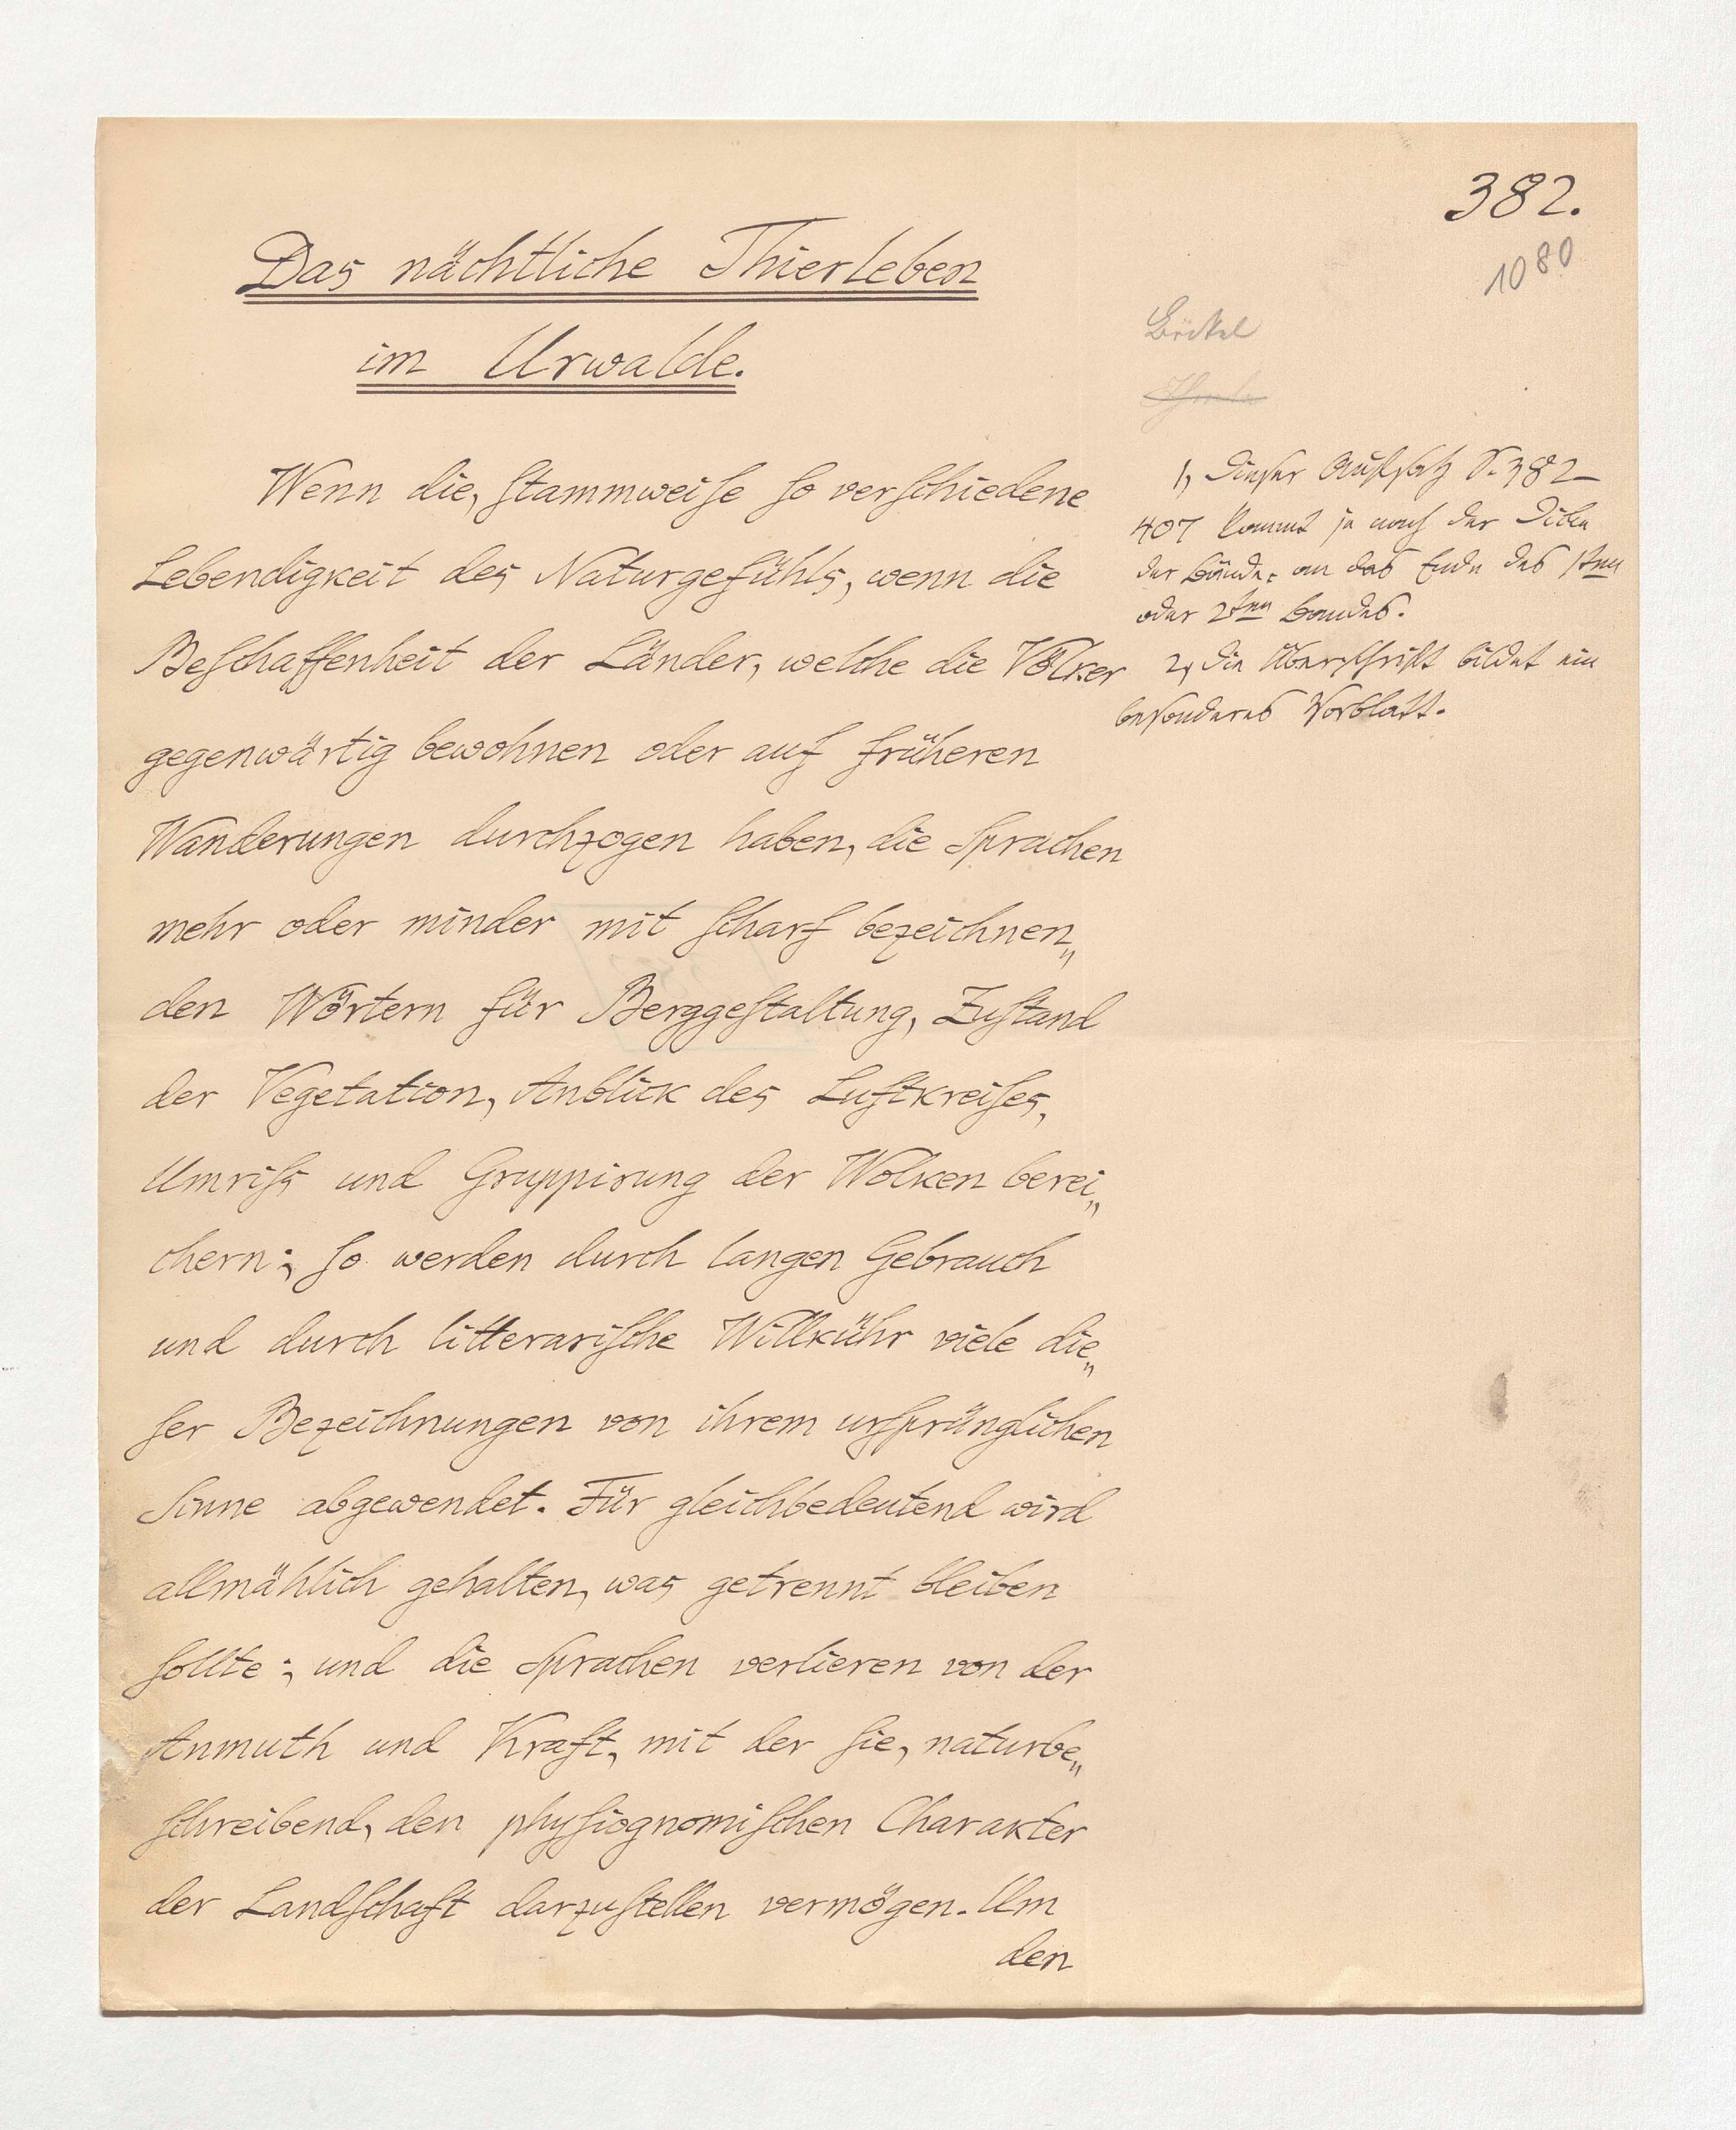 382.
1080
Das nächtliche Thierleben
im Urwalde.
Böckel
1, Dieser Aufsatz S. 382–
407 kommt je nach der Dicke
der Bände, an das Ende des 1sten
oder 2ten Bandes.
2, Die Überschrift bildet ein
besonderes Vorblatt.
Wenn die, stammweise so verschiedene
Lebendigkeit des Naturgefühls, wenn die
Beschaffenheit der Länder, welche die Völker
gegenwärtig bewohnen oder auf früheren
Wanderungen durchzogen haben, die Sprachen
mehr oder minder mit scharf bezeichnen„
den Wörtern für Berggestaltung, Zustand
der Vegetation, Anblick des Luftkreises,
Umriss und Gruppirung der Wolken berei„
chern; so werden durch langen Gebrauch
und durch litterarische Willkühr viele die„
ser Bezeichnungen von ihrem ursprünglichen
Sinne abgewendet. Für gleichbedeutend wird
allmählich gehalten, was getrennt bleiben
sollte; und die Sprachen verlieren von der
Anmuth und Kraft, mit der sie, naturbe„
schreibend, den physiognomischen Charakter
der Landschaft darzustellen vermögen. Um
den